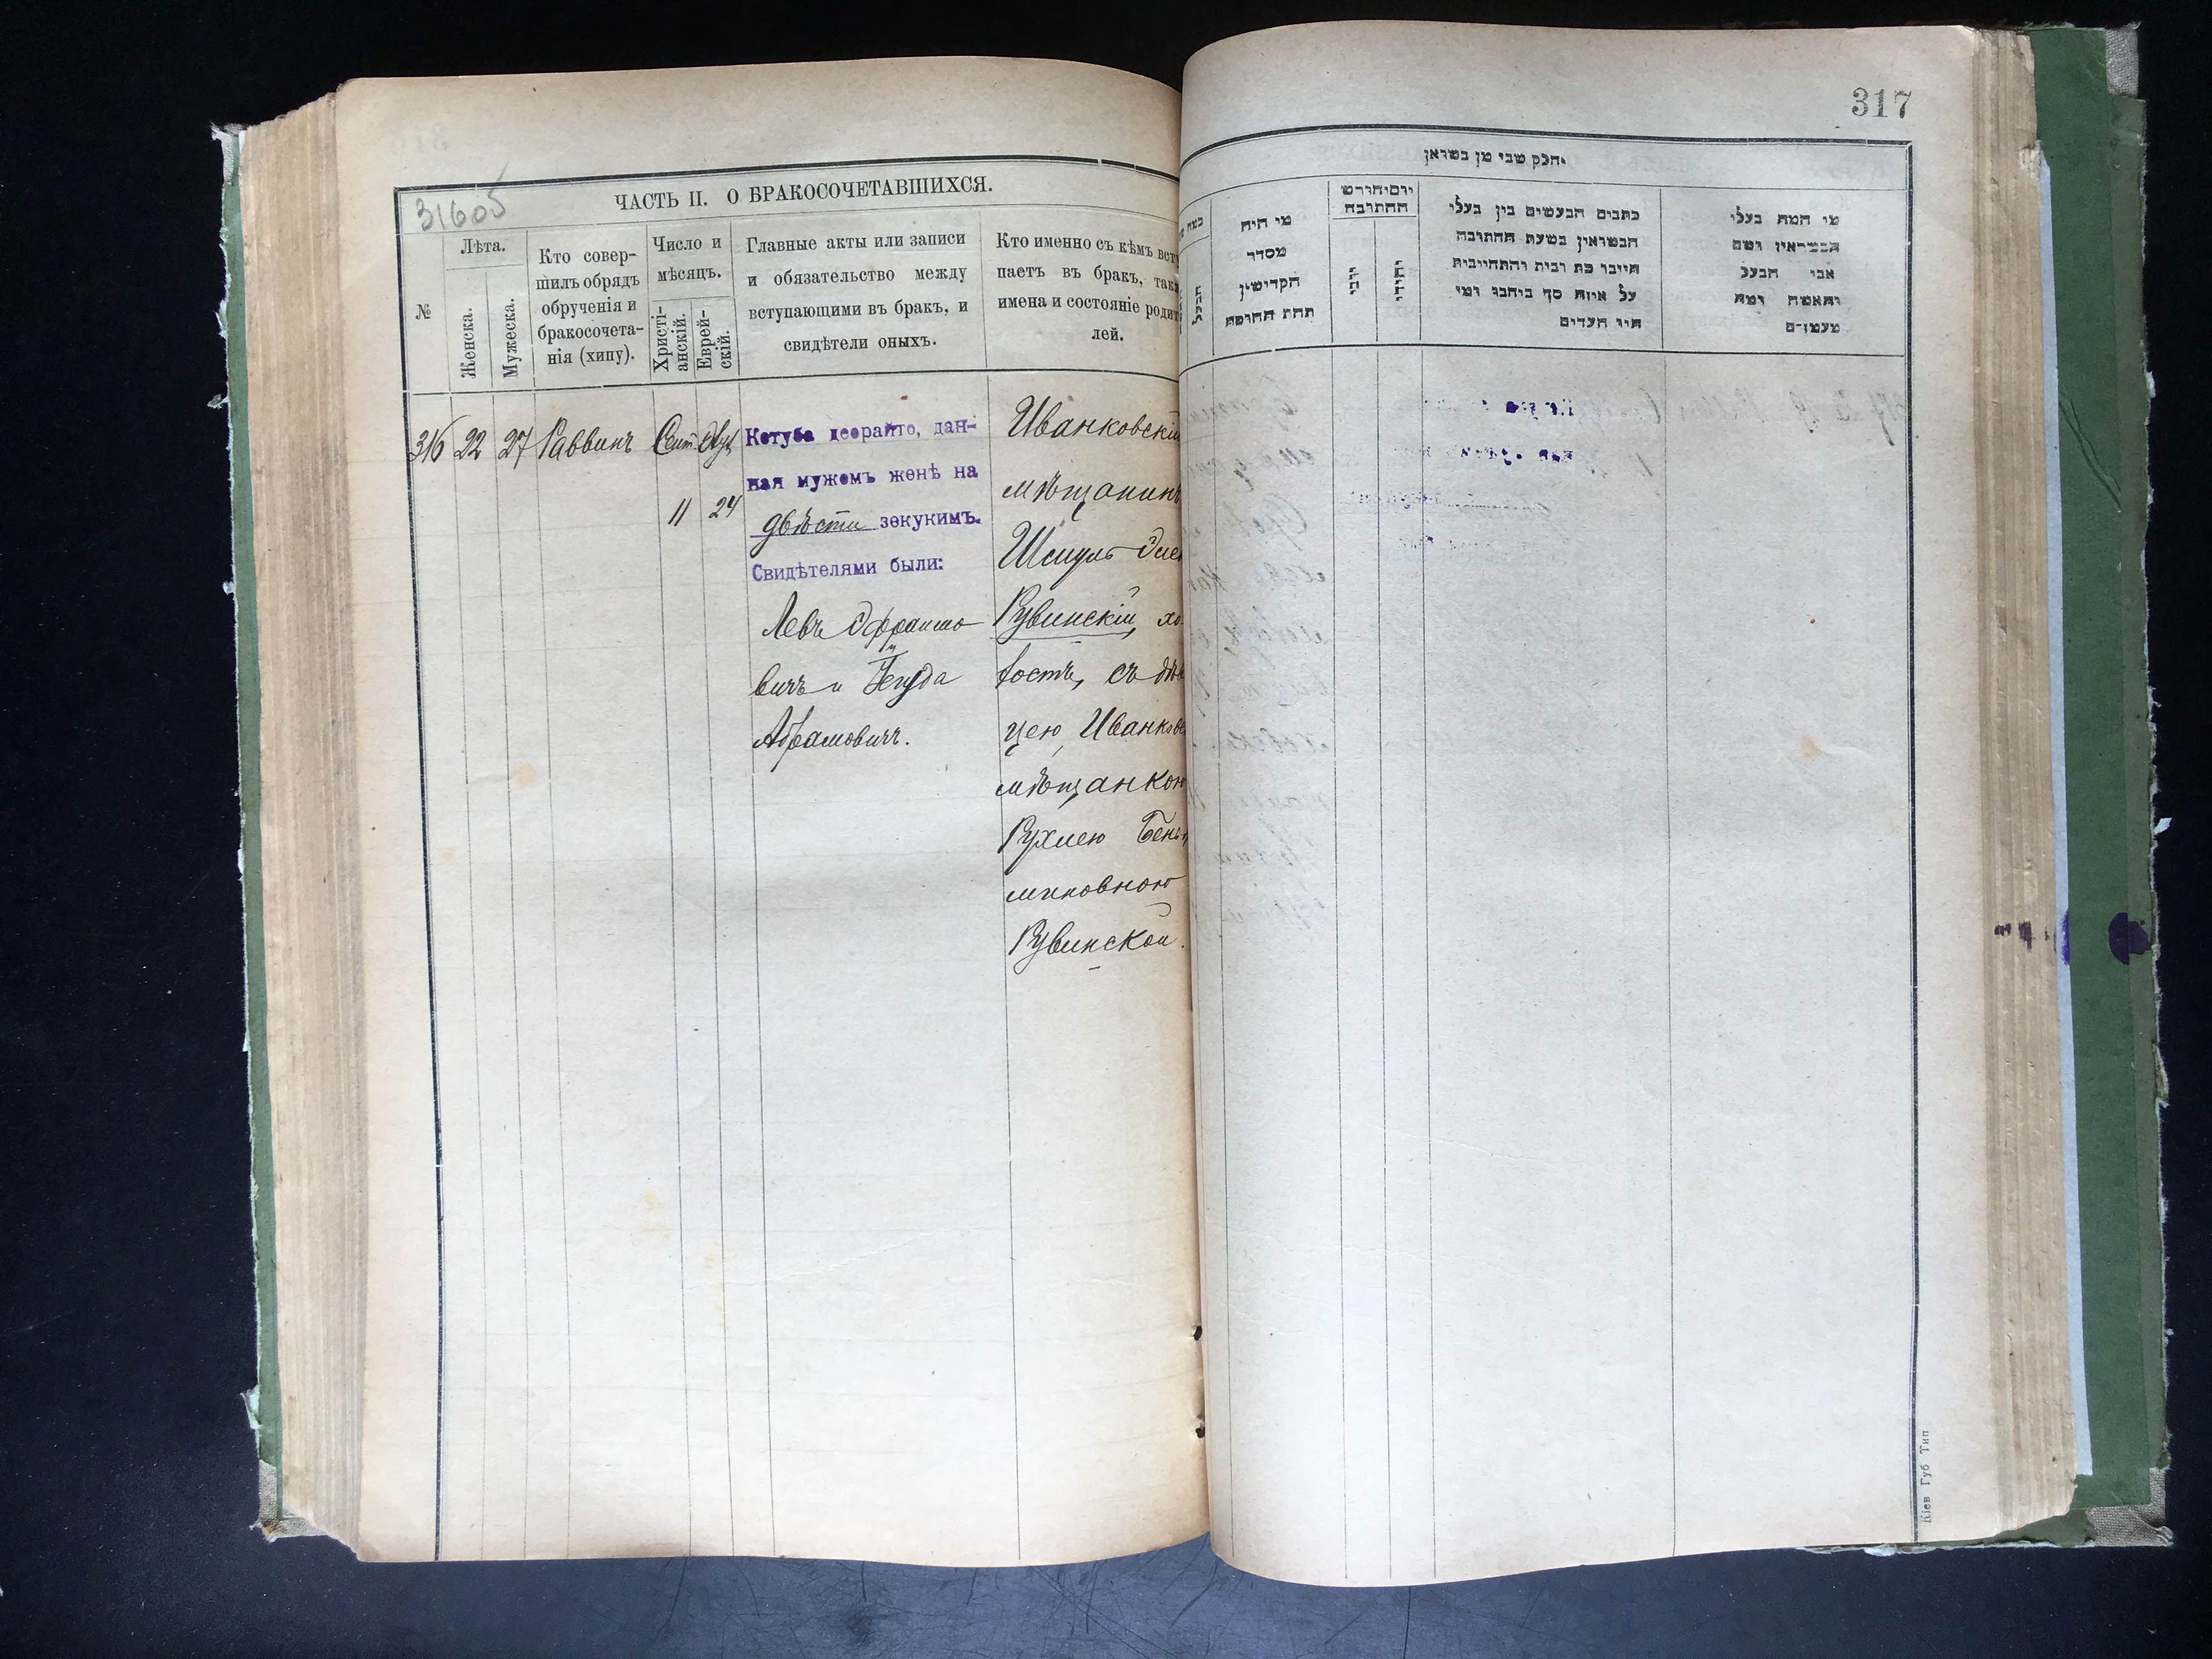 31605
ЧАСТЬ II. О БРАКОСОЧЕТАВШИХСЯ.
№
Лѣта.
Женска.
Мужеска.
Кто совер-
шилъ обрядъ
обрученія и
бракосочета-
нія (хипу).
Число и
мѣсяцъ.
Христі-
анскій.
Еврей-
скій.
Главные акты или записи
и обязательство между
вступающими въ бракъ, и
свидѣтели оныхъ.
Кто именно съ кѣмъ вст
паетъ въ бракъ, так
имена и состояніе родит
лей.
316 22 27 Раввинъ Сент
11 24
Кетуба деорайто, дан-
ная мужемъ женѣ на
двѣсти зекукимъ.
Свидѣтелями были:
Левъ Эфраимо
вичъ и Іегуда
Абрамовичъ.
Иванковскій
мѣщанинъ
Шмуль
Рувинскій, хо
лостъ, съ дѣв
цею, Иванков
мѣщанкою
Рухлею Бенья
миновною
Рувинской.
317
חלק שני מן
מי היה
מסדר
הקדושין
תחת החופה
הבעל
כתבים הנעשים בין בעלי
הנשואין בשעת החתונה
על איזה סך כיהבו ומי
היו העדים
מי המה בעלי
הנשואין ושם
אבי הבעל
והאשה ומה
מעמדם
Кіев Губ Тип